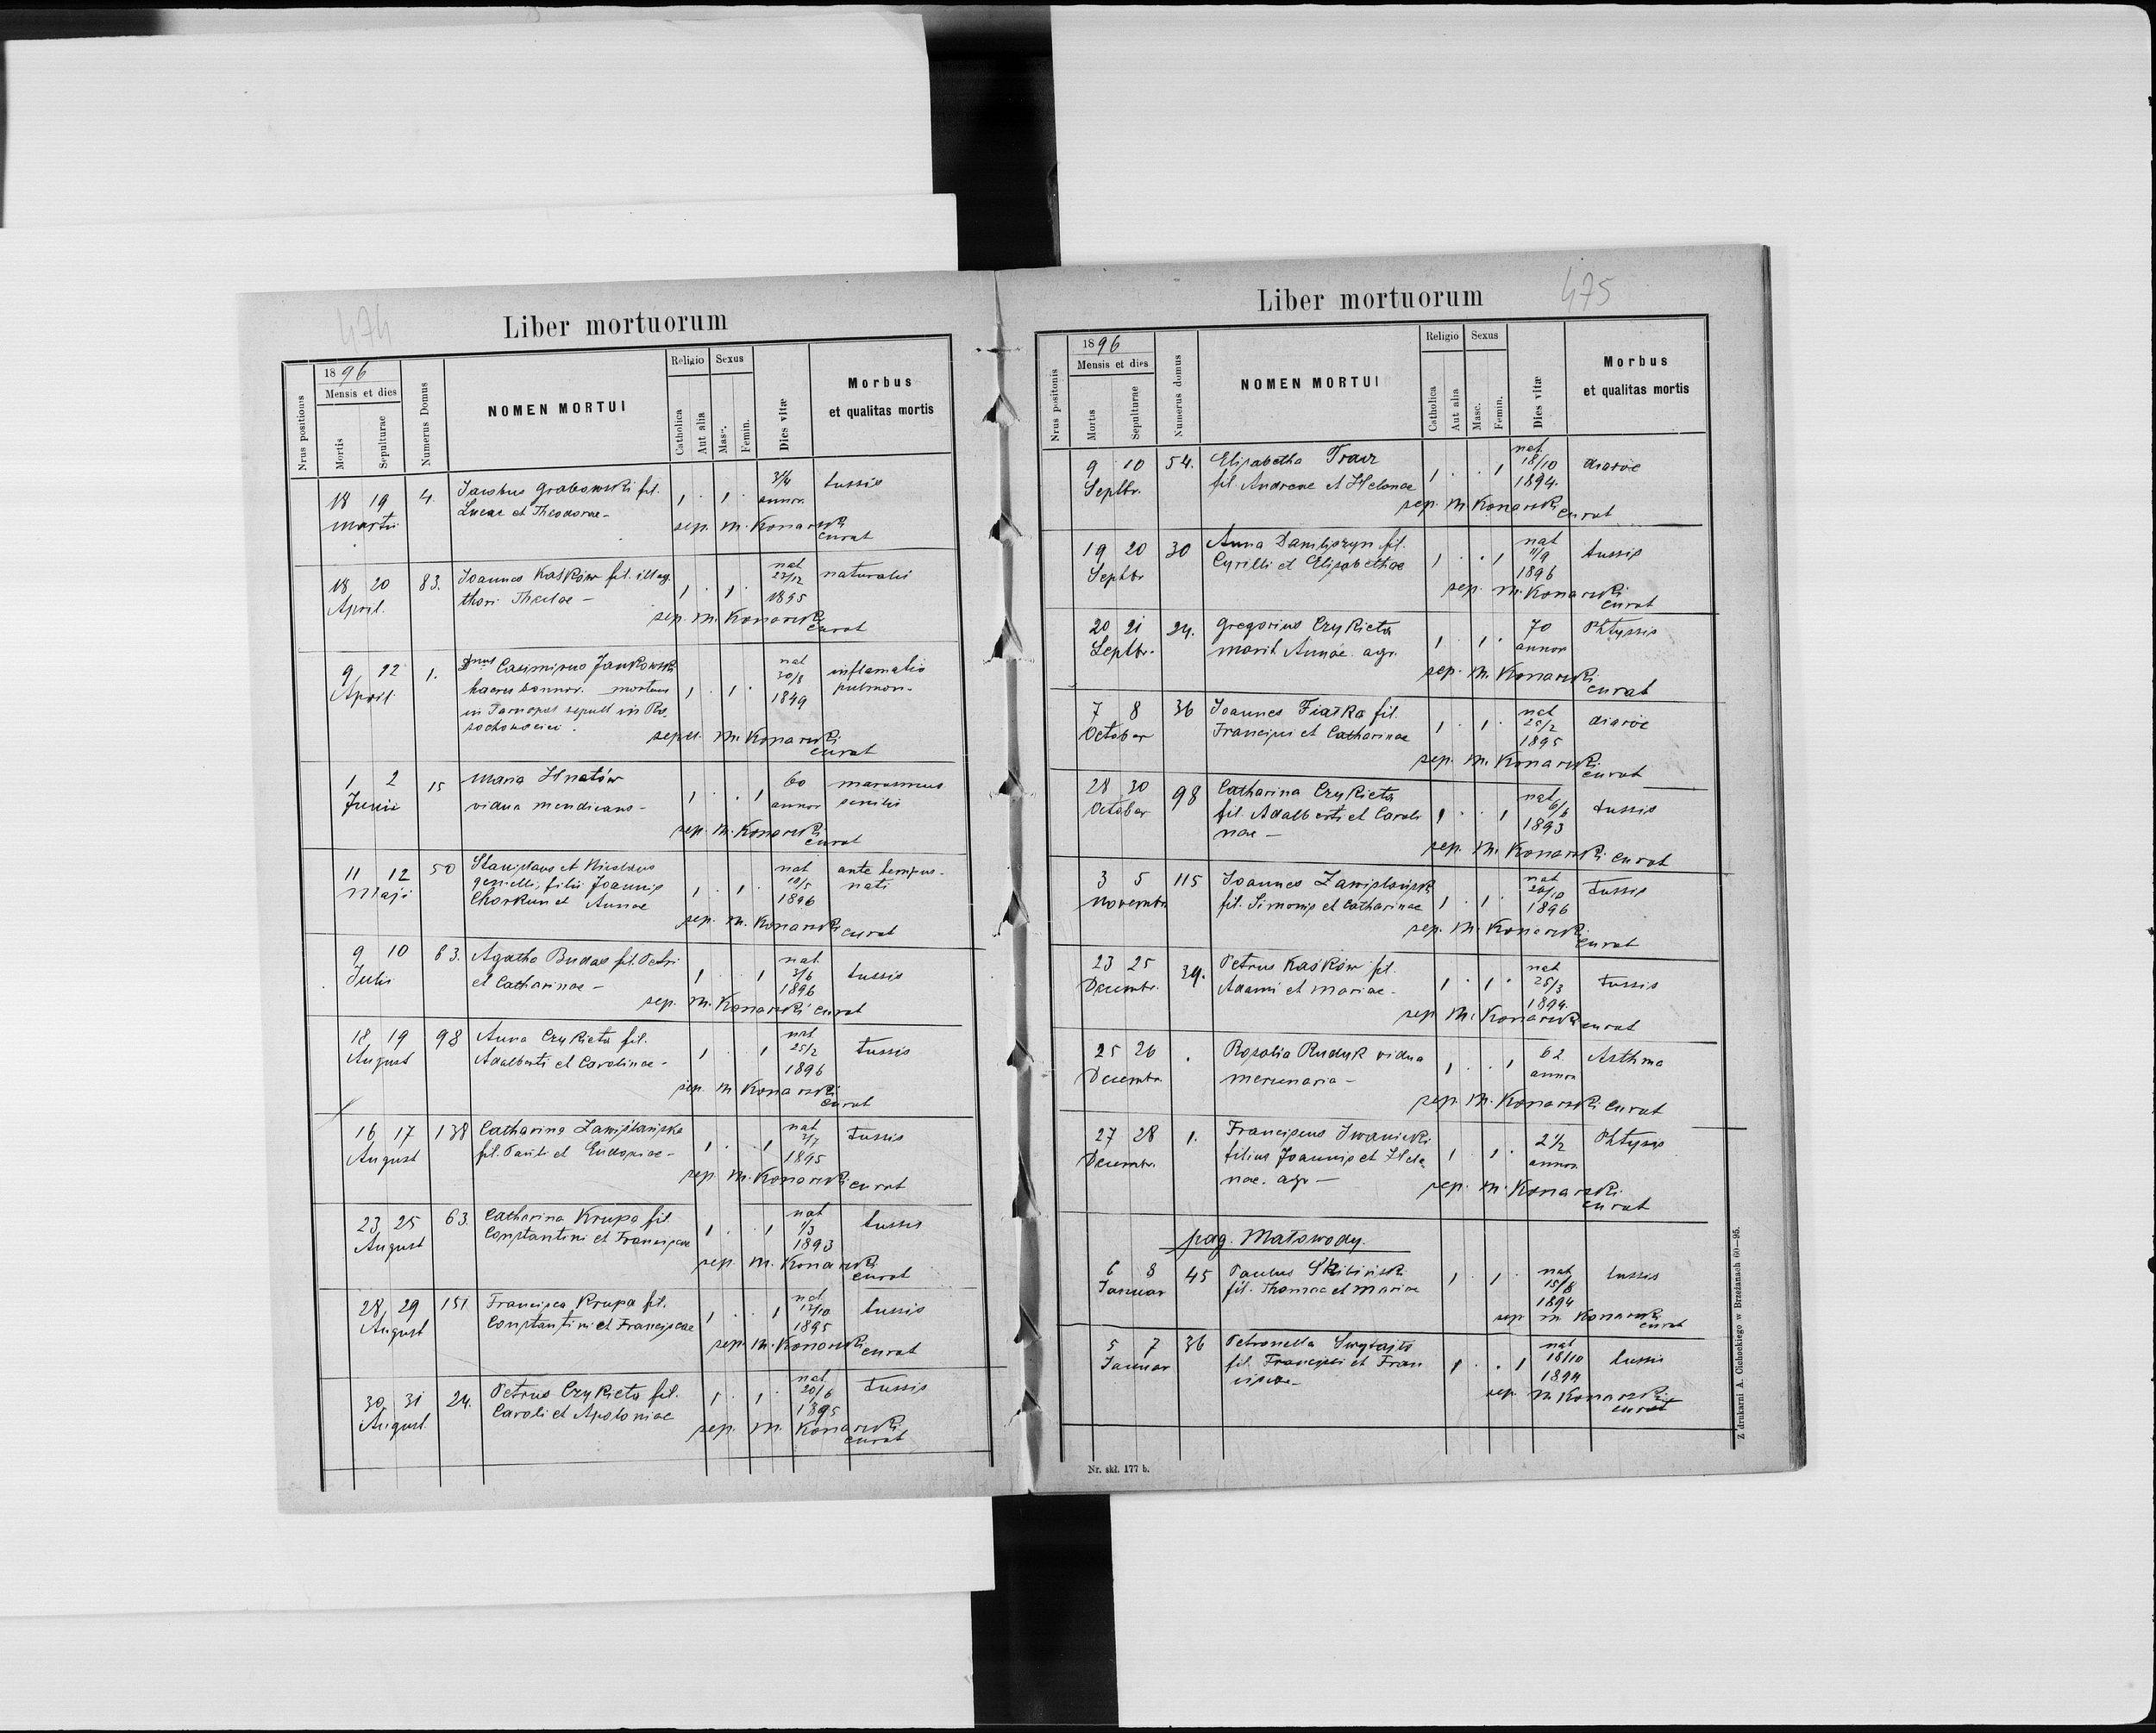 474
Liber mortuorum
Nrus positionis
1896
Mensis et dies
Mortis
Sepulturae
Numerus Domus
NOMEN MORTUI
Religio
Catholica
Aut alia
Sexus
Masc.
Femin.
Dies vitæ
Morbus
et qualitas mortis
18 19 4. Jacobus Grabowski fil. 1 . 1 . tussis
martii Lucae et Theodorae - annor.
sep. M. Konarski
curat
18 20 83. Joannes Kaśków fil. illeg. 1 . 1 . nat naturalis
April. thori Theclae - 27/12
1895
sep. M. Konarski
curat
9 22 1. Dnus Casimirus Jankowski nat inflamatio
April. haeres bonnor. mortuus 1 . 1 . 30/8 pulmon.
in Tarnopol sepult in Ro- 1849
sochowaciec.
sepel. M. Konarski
curat
1 2 15 Maria Hnatów 1 . . 1 60 marasmus
Junii vidua mendicans - annor senilis
sep. M. Konarski
curat
11 12 50 Stanislaus et Nicolaus nat ante tempus
Maji gemelli, filii Joannis 1 . 1 . 10/5 nati
Chorkun et Annae 1896
sep. M. Konarski curat
9 10 63. Agatha Budas fil. Petri nat
Juli et Catharinae - 1 . . 1 3/6 tussis
1896
sep. M. Konarski curat
18 19 98 Anna Czykieta fil. nat
August Adalberti et Carolinae - 1 . . 1 25/2 tussis
1896
sep. M Konarski
curat
16 17 138 Catharina Zawiślańska nat tussis
August fil. Pauli et Eudoxiae - 1 . . 1 2/7
1895
sep. M. Konarski curat
23 25 63. Catharina Krupa fil nat tussis
August Constantini et Franciscae 1 . . 1 1/3
1893
sep. M. Konarski
curat
28 29 151 Francisca Krupa fil. nat tussis
August Constantini et Franciscae 1 . . 1 12/10
1895
sep. M. Konarski curat
30 31 24. Petrus Czykieta fil. nat tussis
August. Caroli et Apoloniae 1 . 1 . 20/6
1895
sep. M. Konarski
curat
475
Liber mortuorum
Nrus positionis
1896
Mensis et dies
Mortis
Sepulturae
Numerus domus
NOMEN MORTUI
Religio
Catholica
Aut alia
Sexus
Masc.
Femin.
Dies vitæ
Morbus
et qualitas mortis
9 10 54. Elisabetha Tracz nat diaroe
Septbr. fil. Andreae et Helenae 1 . . 1 18/10
1894.
sep. M. Konarski curat
19 20 30 Anna Daniliszyn fil. nat tussis
Septbr Cyrilli et Elisabethae 1 . . 1 11/9
1896
sep. M. Konarski
curat
20 21 24. Gregorius Czykieta 70 Phtyssis
Septbr. marit Annae agr. 1 . 1 . annor
sep. M. Konarski
curat
7 8 36 Joannes Fiałka fil. nat diaroe
October Francisci et Catharinae 1 . 1 . 25/2
1895
sep. M. Konarski
curat
28 30 98 Catharina Czykieta nat tussis
October fil. Adalberti et Caroli 1 . . 1 6/6
nae - 1893
sep. M. Konarski curat
3 5 115 Joannes Zawiślański nat tussis
Novembr. fil. Simonis et Catharinae 1 . 1 . 20/10
1896
sep. M. Konarski
curat
23 25 34. Petrus Kaśków fil. nat
Decembr. Adami et Mariae - 1 . 1 . 25/3 tussis
1894.
sep M. Konarski curat
25 26 . Rosalia Rudyk vidua 62 Asthma
Decembr. mercenaria - 1 . . 1 annor
sep. M. Konarski curat
27 28 1. Franciscus Iwanicki 2 1/2 Phtysis
Decembr. filius Joannis et Hele 1 . 1 . annor.
nae. agr -
sep. M. Konarski
curat
pag. Małowody.
6 8 45 Paulus Skibiński 1 . 1 . nat tussis
Januar fil. Thomae et Mariae 15/8
1894
sep M Konarski
curat
5 7 36 Petronella nat
Januar fil. Francisci et Fran 1 . . 1 18/10 tussis
ciscae - 1894
sep. M Konarski
curat
Nr. skł. 177 b.
Z drukarni A. Cichockiego w Brzeżanach 60—95.